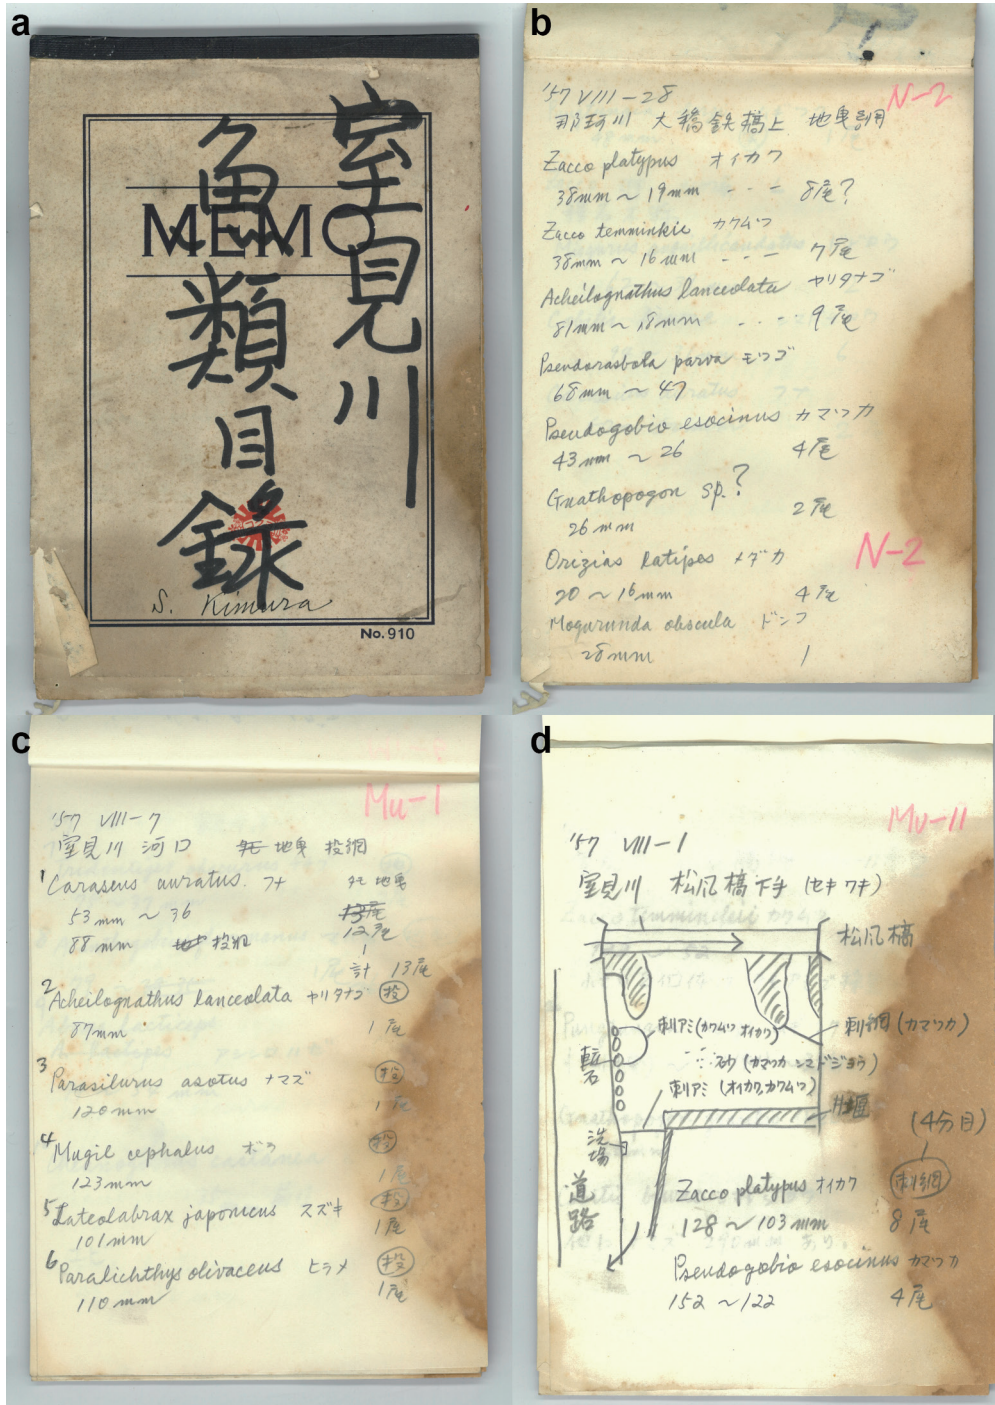 a
室見川
魚類目録
MEMO
S. Kimura
No. 910
b
N-2
'57 VIII-28
那珂川 大橋鉄橋上 地曳網
Zacco platypus オイカワ
38mm ~ 19mm - - - 8尾?
Zacco temminkie カワムツ
38mm ~ 16mm - - - 7尾
Acheilognathus lanceolata ヤリタナゴ
81mm ~ 18mm - - - 9尾
Pseudorasbola parva モツゴ
68mm ~ 47
Pseudogobio esocinus カマツカ
43mm ~ 26 4尾
Gnathopogon sp.?
26mm 2尾
N-2
Orizias latipes メダカ
20 ~ 16mm 4尾
Mogurunda obscula ドンコ
28mm 1
c
Mu-1
'57 VIII-7
室見川 河口 地曳 投網
1 Caraseus auratus. フナ 地曳
53mm ~ 36 12尾
88mm 投網 1
計 13尾
2 Acheilognathus lanceolata ヤリタナゴ 投
87mm 1尾
3 Parasilurus asotus ナマズ 投
120mm 1尾
4 Mugil cephalus ボラ 投
123mm 1尾
5 Lateolabrax japonicus スズキ 投
101mm 1尾
6 Paralichthys olivaceus ヒラメ 投
110mm 1尾
d
Mu-11
'57 VIII-1
室見川 松風橋下手 (セキワキ)
松風橋
刺アミ(カワムツ オイカワ)
刺網(カマツカ)
転石
砂(カマツカ シマドジョウ)
刺アミ(オイカワ,カワムツ)
井堰
洗場
(4分目)
道路
Zacco platypus オイカワ 刺網
128 ~ 103mm 8尾
Pseudogobio esocinus カマツカ
152 ~ 122 4尾